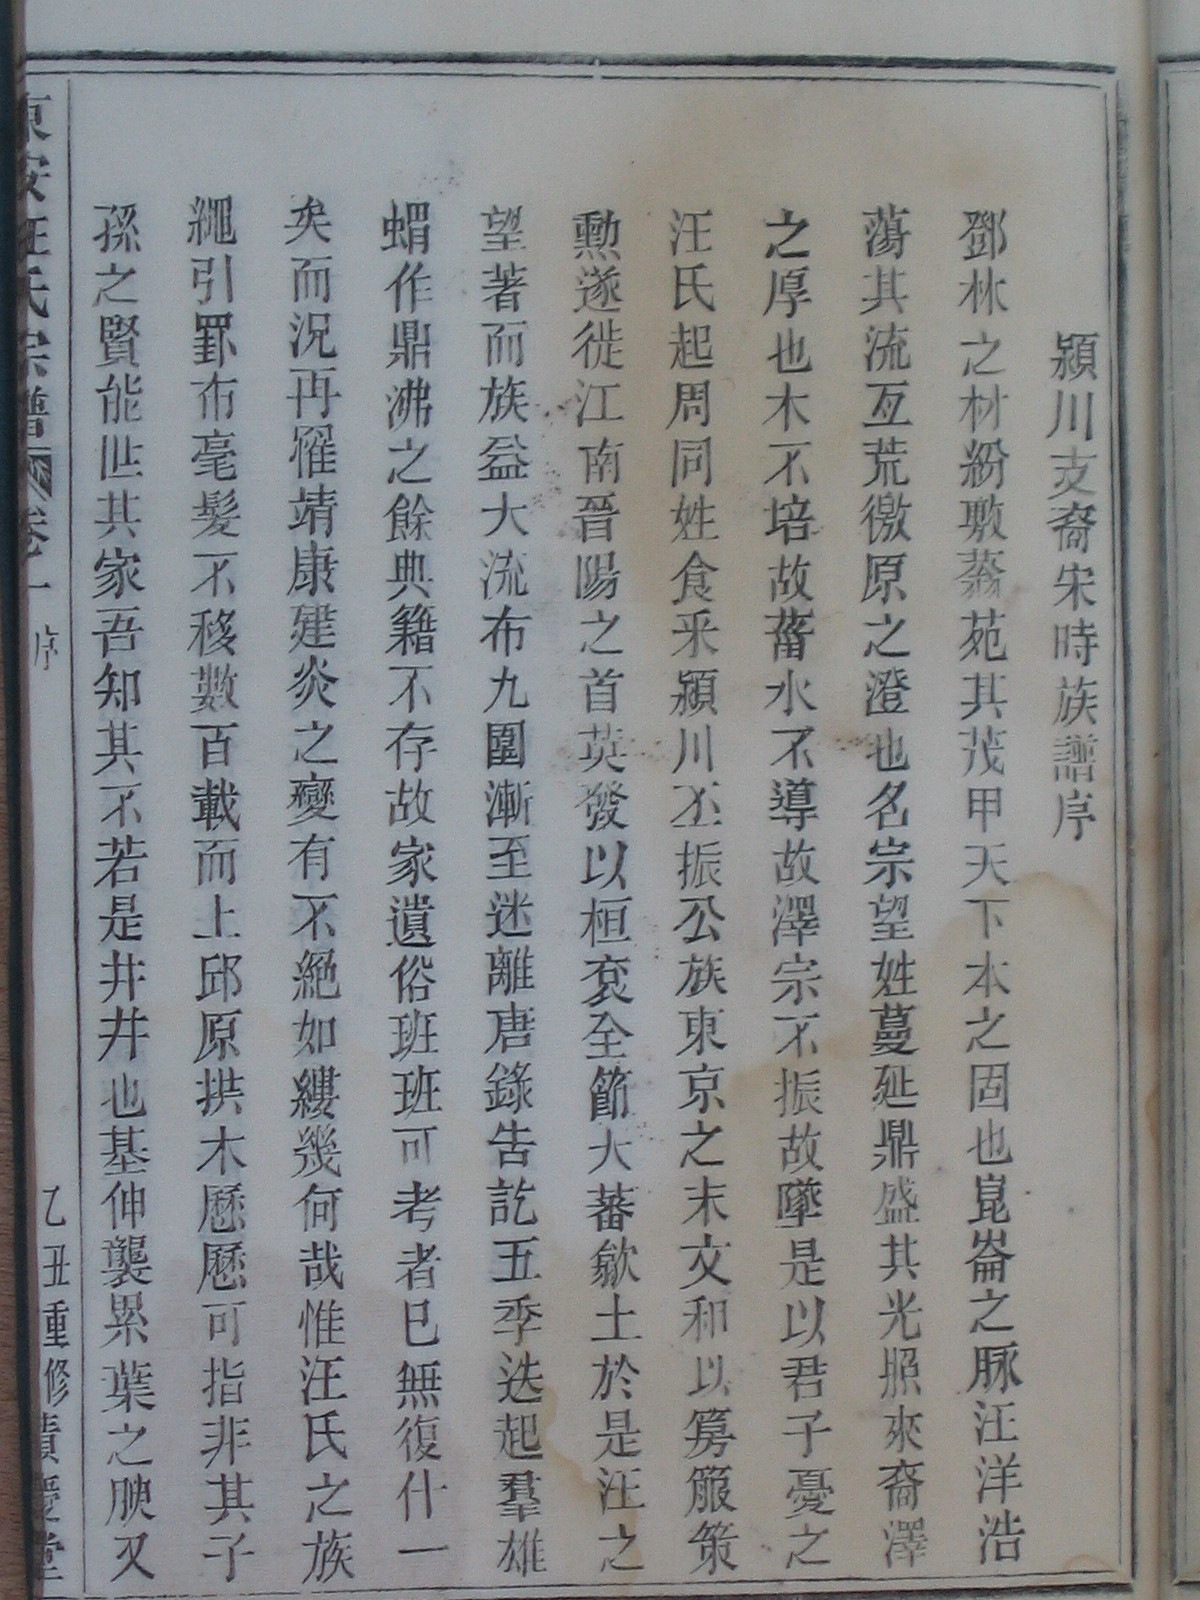 潁川支裔宋時族譜序
鄧林之材紛敷蓊苑其茂甲天下本之固也崑崙之脈汪洋浩
蕩其流亙荒徼原之澄也名宗望姓蔓延鼎盛其光照來裔澤
之厚也木不培故菑水不導故澤宗不振故墜是以君子憂之
汪氏起周同姓食采潁川丕振公族東京之末文和以勇服策
勳遂徙江南晉陽之首英發以桓袞全節大蕃歙土於是汪之
望著而族益大流布九圍漸至迷離唐錄告訖五季迭起羣雄
蝟作鼎沸之餘典籍不存故家遺俗班班可考者已無復什一
矣而況再罹靖康建炎之變有不絕如縷幾何哉惟汪氏之族
繩引罫布毫髮不移數百載而上邱原拱木歷歷可指非其子
孫之賢能世其家吾知其不若是井井也基伸襲累葉之腴又
東安汪氏宗譜 卷一 序 乙丑重修積慶堂